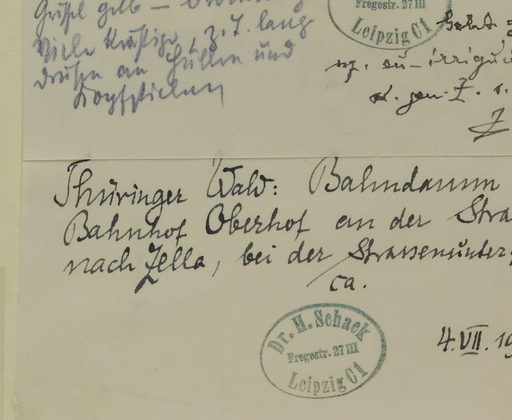 Griffel gelb –
Viele kräftige, z. T. lang
Drüsen an Hüllen und
Kopfstielen
Fregestr. 27 III
Leipzig C1
Thüringer Wald: Bahndamm
Bahnhof Oberhof an der Stra
nach Zella, bei der Strassenunter-
ca.
Dr. H. Schack
Fregestr. 27 III
Leipzig C1
4. VII. 19